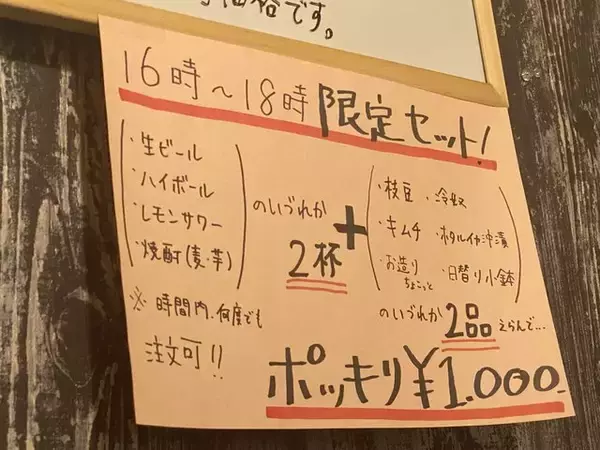 です。
16時~18時 限定セット!
・生ビール
・ハイボール
・レモンサワー
・焼酎(麦・芋)
のいづれか
2杯
+
・枝豆 ・冷奴
・キムチ ・ホタルイカ沖漬
・お造りちょこっと ・日替り小鉢
のいづれか 2品 えらんで…
※時間内、何度でも
注文可!!
ポッキリ¥1.000-